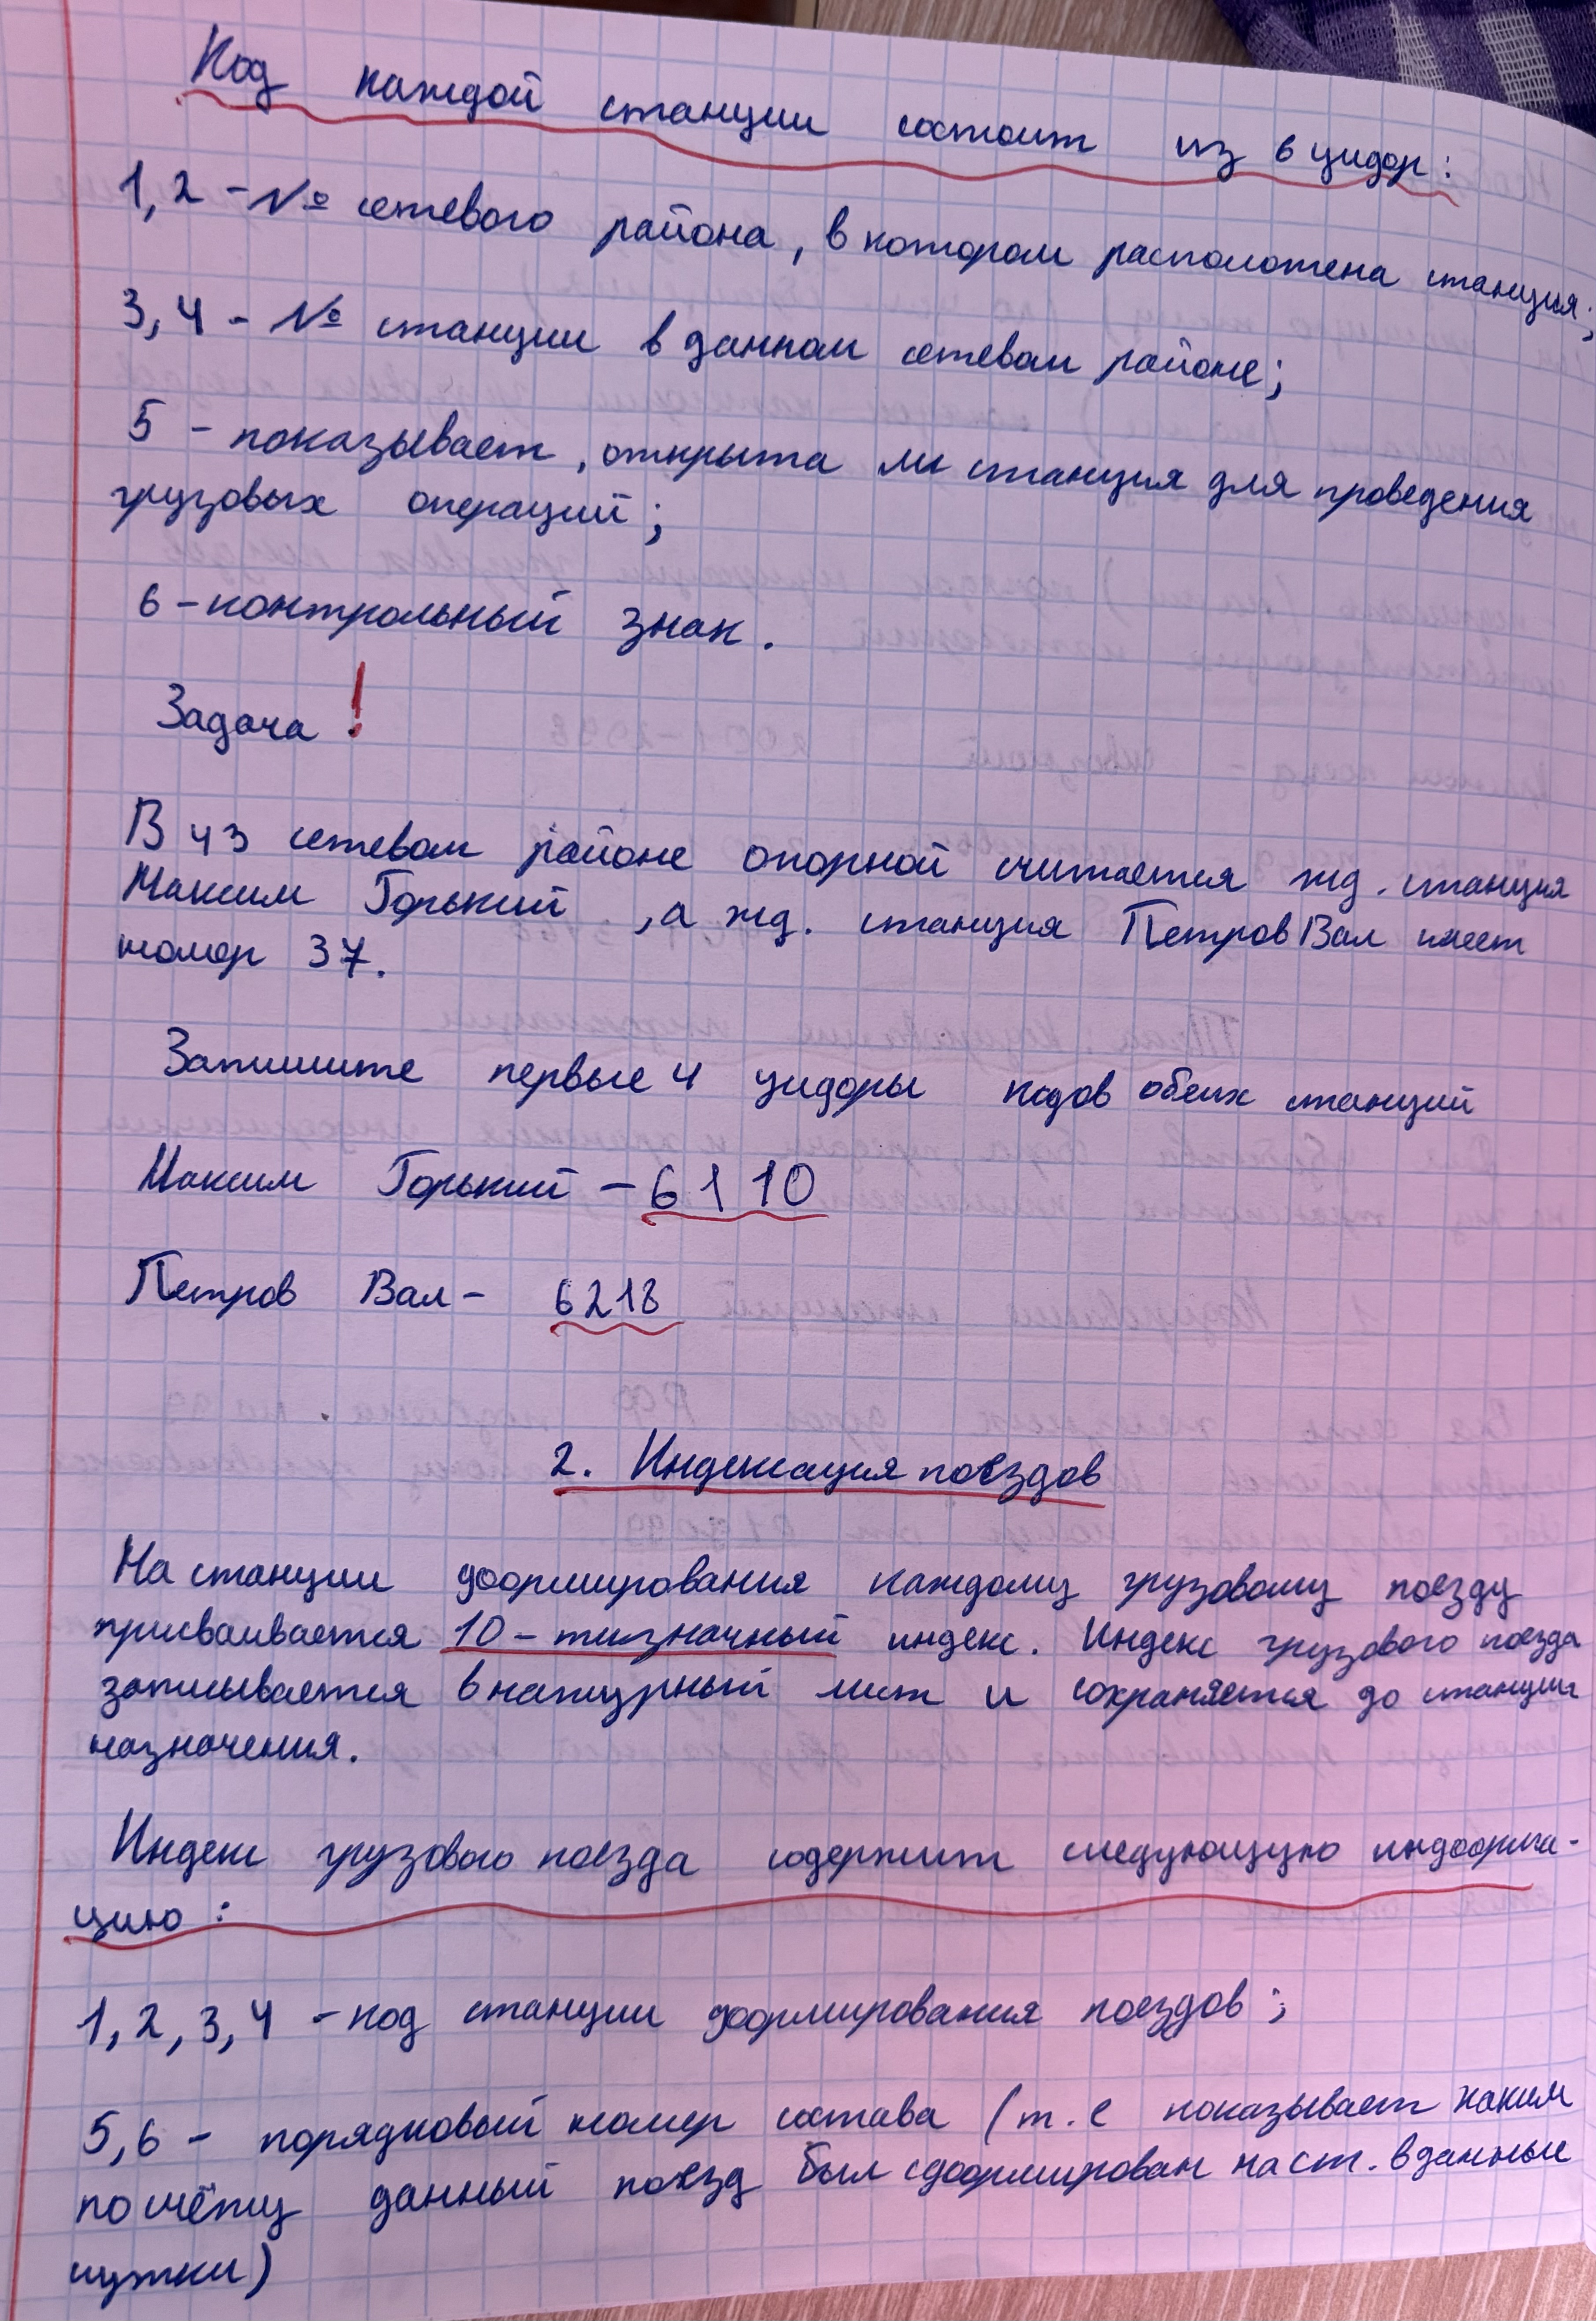 Код каждой станции состоит из 6 цифр:
1,2 - № сетевого района, в котором расположена станция;
3,4 - № станции в данном сетевом районе;
5 - показывает, открыта ли станция для проведения
грузовых операций;
6 - контрольный знак.
Задача!
В 43 сетевом районе опорной считается жд. станция
Максим Горький, а жд. станция Петров Вал имеет
номер 37.
Запишите первые 4 цифры кодов обеих станций
Максим Горький - 6110
Петров Вал - 6218
2. Индексация поездов
На станции формирования каждому грузовому поезду
присваивается 10-тизначный индекс. Индекс грузового поезда
записывается в натурный лист и сохраняется до станции
назначения.
Индекс грузового поезда содержит следующую информа-
цию:
1,2,3,4 - код станции формирования поездов;
5,6 - порядковый номер состава (т.е показывает каким
по счёту данный поезд был сформирован на ст. в данные
сутки)